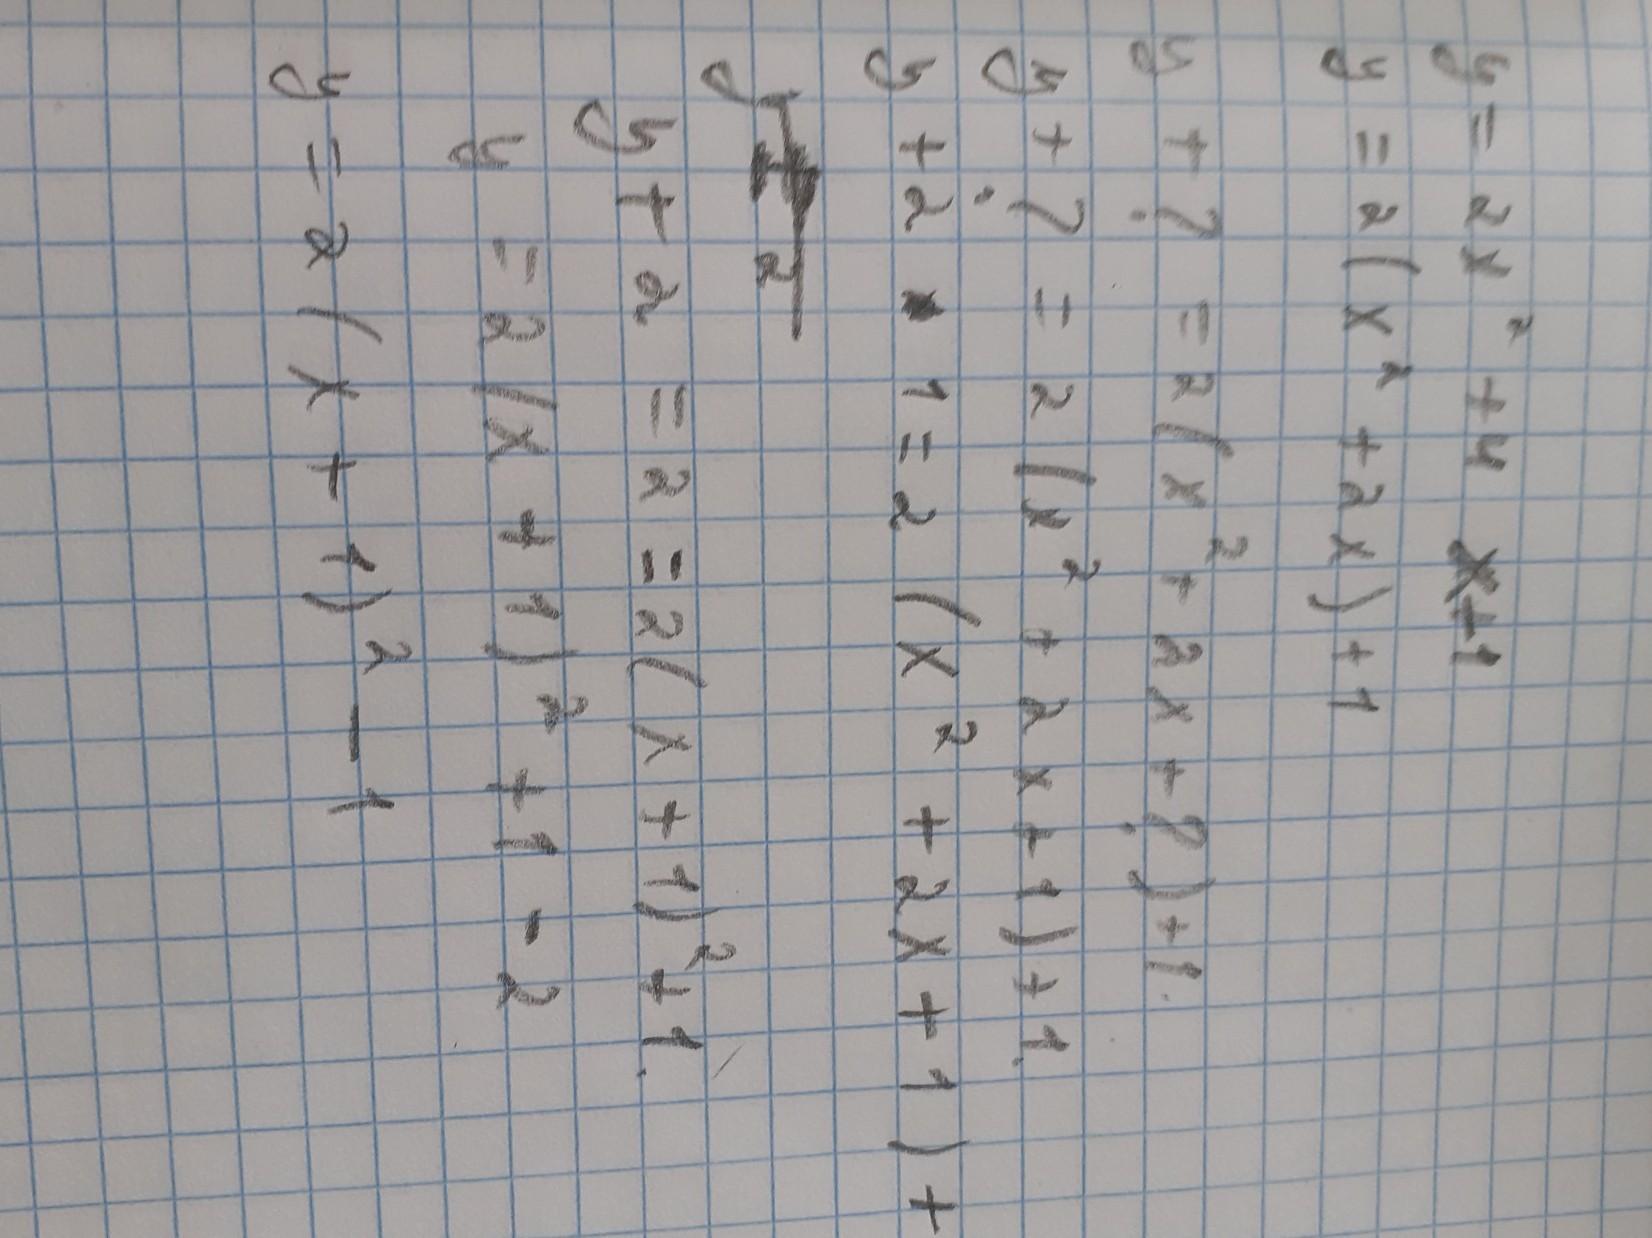 y = 2x² + 4x + 1
y = 2(x² + 2x) + 1
y + ? = 2(x² + 2x + ?) + 1.
y + ? = 2(x² + 2x + 1) + 1.
y + 2 · 1 = 2(x² + 2x + 1) +
y + 2 = 2 = 2(x + 1)² + 1.
y = 2(x + 1)² + 1 - 2
y = 2(x + 1)² - 1